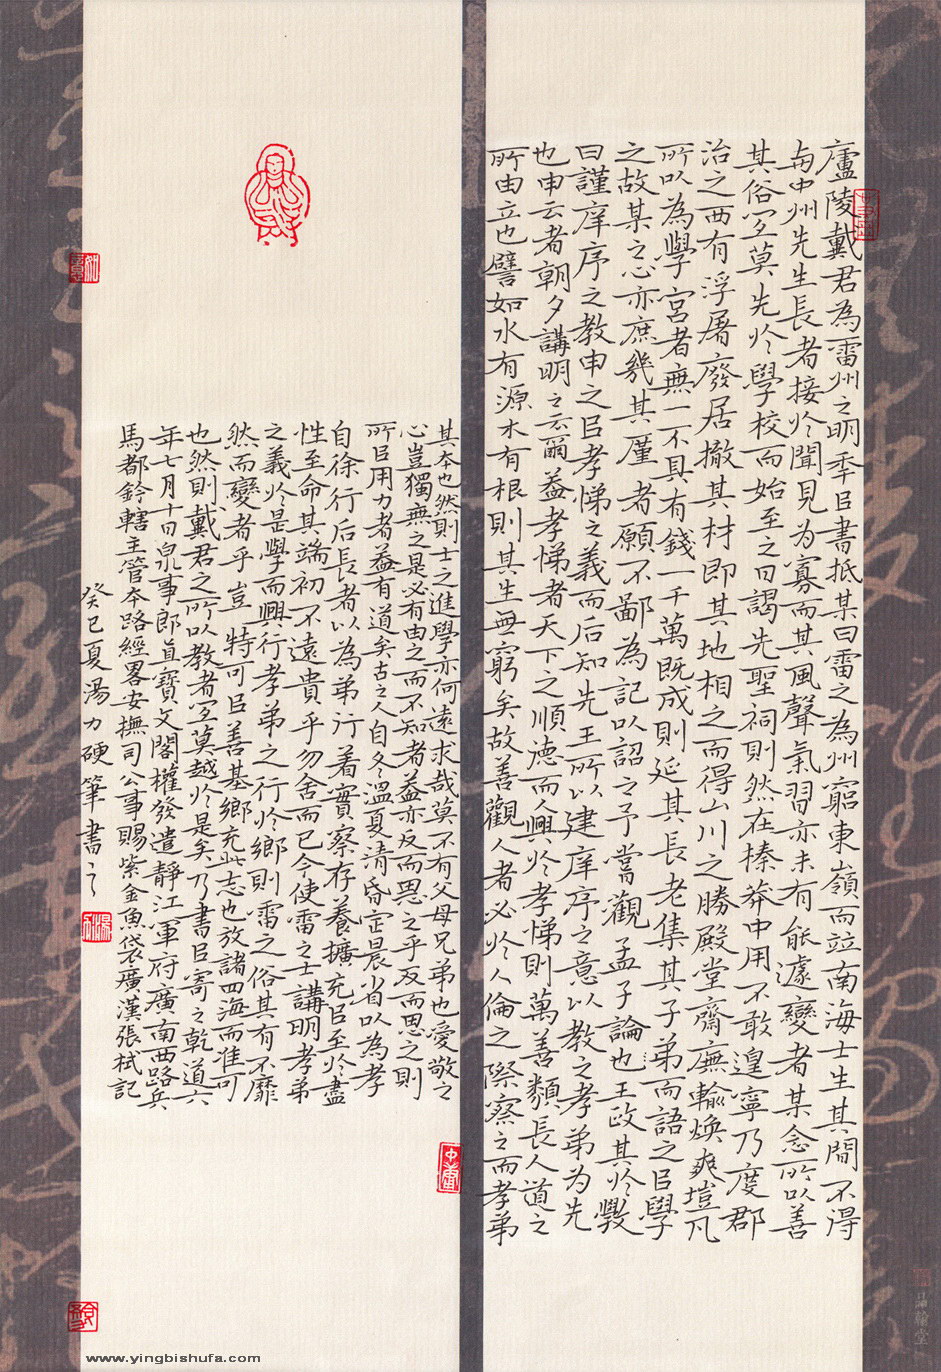 廬陵戴君為雷州之明年㠯書抵某曰雷之為州窮東嶺而竝南海士生其間不得
与中州先生長者接於聞見为寡而其風聲氣習亦未有能遽變者某念所以善
其俗宜莫先於學校而始至之日謁先聖祠則然在榛莽中用不敢遑寧乃度郡
治之西有浮屠廢居撤其材即其地相之而得山川之勝殿堂齋廡輸煥爽塏凡
所以為學宮者無一不具有錢一千萬既成則延其長老集其子弟而語之㠯學
之故某之心亦庶幾其厪者願不鄙為記以詔之予嘗觀孟子論也王政其於斅
曰謹庠序之教申之㠯孝悌之義而后知先王所以建庠序之意以教之孝弟为先
也申云者朝夕講明之云爾益孝悌者天下之順德而人興於孝悌則萬善類長人道之
所由立也譬如水有源木有根則其生無窮矣故善觀人者必於人倫之際察之而孝弟
其本也然則士之進學亦何遠求哉莫不有父母兄弟也愛敬之
心豈獨無之是必有由之而不知者益亦反而思之乎反而思之則
所㠯用力者益有道矣古之人自冬溫夏清昏定晨省以為孝
自徐行后長者以為弟行着實察存養擴充㠯至於盡
性至命其端初不遠貴乎勿舍而已今使雷之士講明孝弟
之義於是學而興行孝弟之行於鄉則雷之俗其有不靡
然而變者乎豈特可㠯善其鄉充此志也放諸四海而准可
也然則戴君之所以教者宜莫越於是矣乃書㠯寄之乾道六
年七月十日承事郎直寶文閣權發遣靜江軍府廣南西路兵
馬都鈐轄主管本路經畧安撫司公事賜紫金魚袋廣漢張栻記
癸巳夏湯力硬筆書之
www.yingbishufa.com